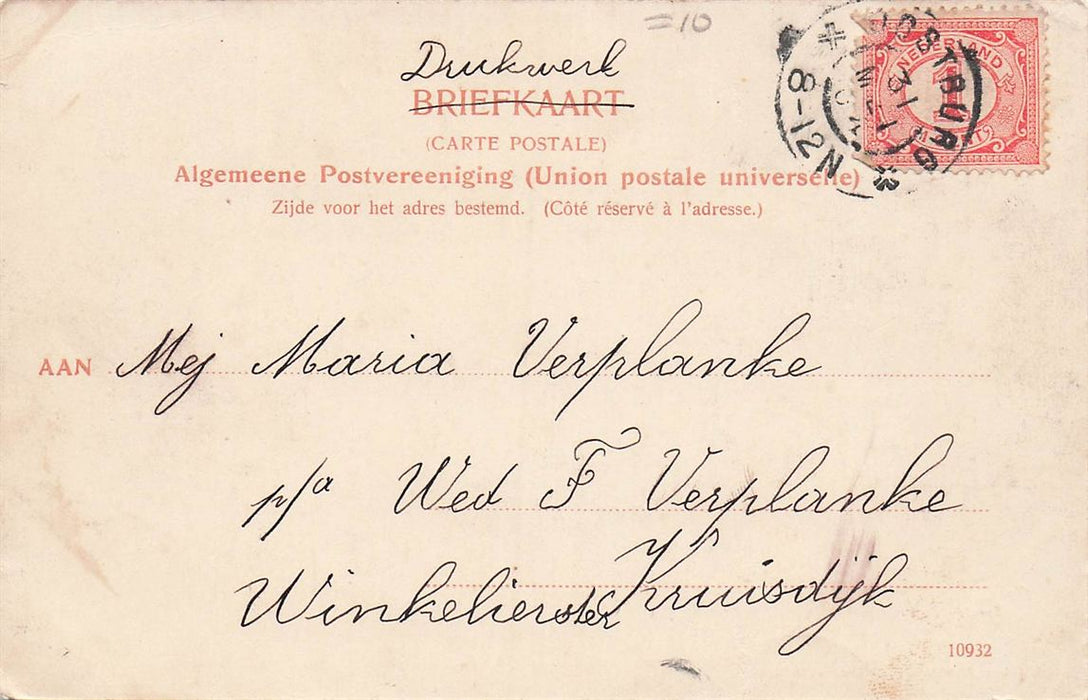 =10
Drukwerk
BRIEFKAART
(CARTE POSTALE)
Algemeene Postvereeniging (Union postale universelle)
Zijde voor het adres bestemd. (Côté réservé à l'adresse.)
NEDERLAND
1
CENT
OOSTBURG
8-12N
AAN Mej Maria Verplanke
p/a Wed F Verplanke
Winkelierster Kruisdijk
10932